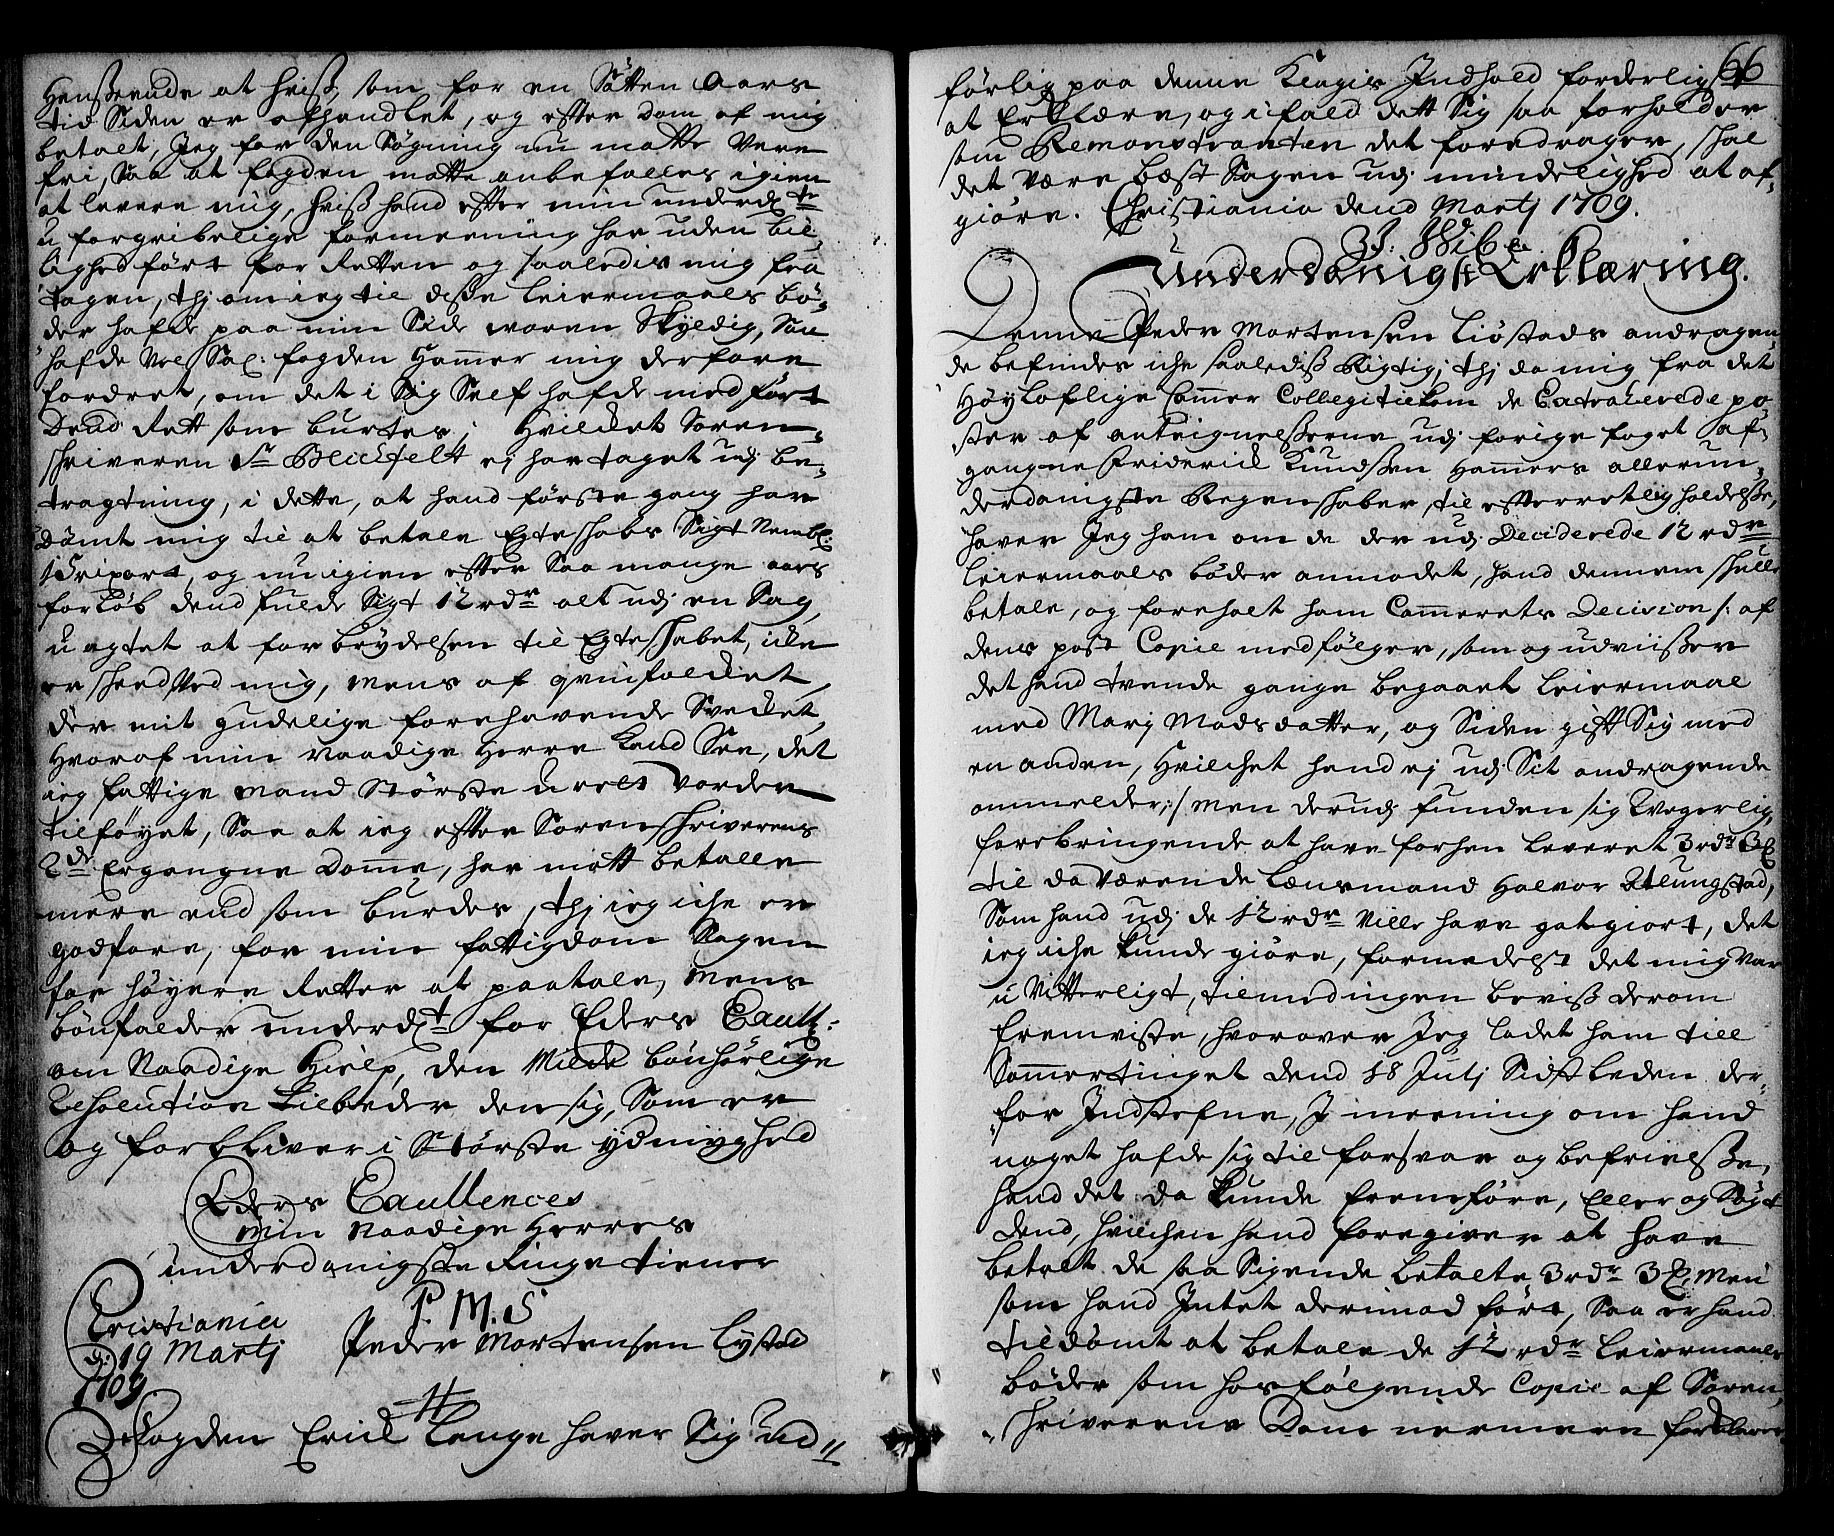 Henseende at hviß som for en Sytten Aars
tid Siden er afhandlet, og efter dom af mig
betalt, Jeg for den Søgning nu motte Vere
fri, Saa at fogden motte anbefalles igien
at levere mig, hviß hand efter min underd:te
u forgribelige formeening har uden bil„
lighed ført for Retten og saaledis mig fra
tagen, thj om ieg til disse leiermaals bø„
der hafde paa min Side waren Skyldig, Saa
hafde Vel Sal: fogden Hamer mig derfore
fordret, om det i Sig Self hafde medført
Dend Rett som burtes; Hvilket Soren„
schriveren Sr Bliicfelt ej har taget udj be„
tragtning, i dette, at hand første gang har
Dømt mig til at betale Egteschabs Sigt Nembl:
1 Sriport, og nu igien efter Saa mange aars
forløb dend fulde Sigt 12 rdr alt udj en Sag,
u agtet at forbrydelsen til Egteschabet, icke
er scheed Ved mig, Mens af qvinfolcket,
der mit gudelige forehavende Svecket,
Hvoraf min Naadige Herre kand See, det
ieg fattige Mand Største Uret vorder
tilføyet, Saa at ieg efter Sorenschriverens
2de Ergangne Domme, har mott betalle
mere end som burdes, thj ieg iche er
godfore, for min fattigdom Sagen
for høyere Retter at paatale, Mens
bønfalder underd:t for Eders Excell:
om Naadige Hielp, den Milde bønhørlige
Resolution tilbeder den sig, Som er
og forbliver i Største ydmyghed
Eders Excellences
Min Naadige Herres
underdanigste Ringe tiener
Cristiania
d: 19 Martj
1709
P. M. S
Peder Mortensen Lystad
Fogden Erich Lange haver Sig Ud„
66
førlig paa denne Klagis Indhold forderligst
at Erklære, og i fald dett Sig saa forholder
som Remonstranten det foredrager, schal
det Være bæst Sagen udj mindelighed at af„
giøre. Christiania dend Martj 1709.
J: Wibe
Underdanigst Erklæring.
Denne Peder Mortensen Liøstads andragen„
de befindes iche saalediß Rigtig; thj da mig fra det
Høyloflige Camer Collegi tilkom de Extraherede po„
ster af antegnelßerne udj forige foget Saf„
gangne Friderich Knudßen Hamers allerun„
derdanigste Regenschaber, til efterretlig holdelße,
haver Jeg ham om de der udj Deciderede 12 rdr
leiermaals bøder anmodet, hand dennem schulle
betale, og foreholt ham Camerets Decision /: af
dens post Copie medfølger, som og udviißer
det hand trende gange begaaet leiermaal
med Marj Madsdatter, og Siden gift Sig med
en anden, Hvilchet hand ej udj Sit andragende
ommelder, :/ men derudj funden sig Vegerlig,
forebringende at have forhen leveret 3 rdr 3
til da Værende Lænsmand Halvor Utlungstad,
Som hand udj de 12 rdr Ville have gotgiort, det
ieg iche kunde giøre, formedelst det mig var
u Vitterligt, til med ingen beviß derom
fremviste, hvorover Jeg ladet ham till
Sommertinget dend 18 Julj Sidst leden der„
for Indstefne, I meening om hand
noget hafde sig til forsvar og befrielße,
hand det da kunde fremføre, Eller og Søgt
dend, hvilchen hand foregiver at have
betalt de saa Sigende betalte 3 rdr 3, Men
som hand Intet derimod ført, Saa er hand
tildømt at betale de 12 rdr leiermaals
bøder som hosfølgende Copie af Soren„
schriverens Dom nermere forklarer